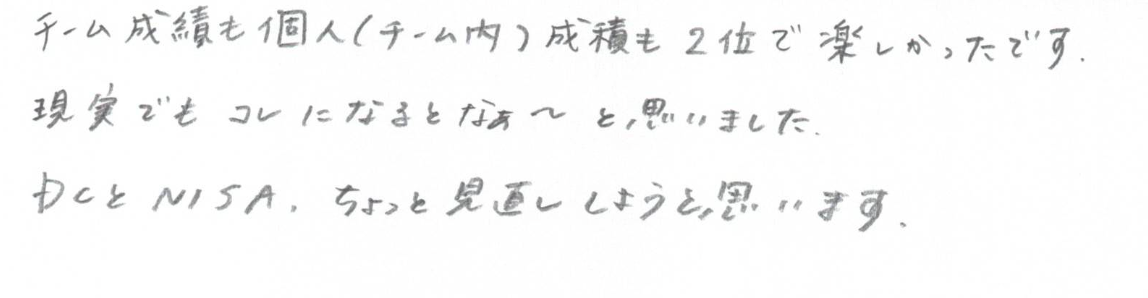 チーム成績も個人(チーム内)成積も2位で楽しかったです.
現実でもコレになるとなぁ〜と思いました.
DCとNISA. ちょっと見直ししようと思います.